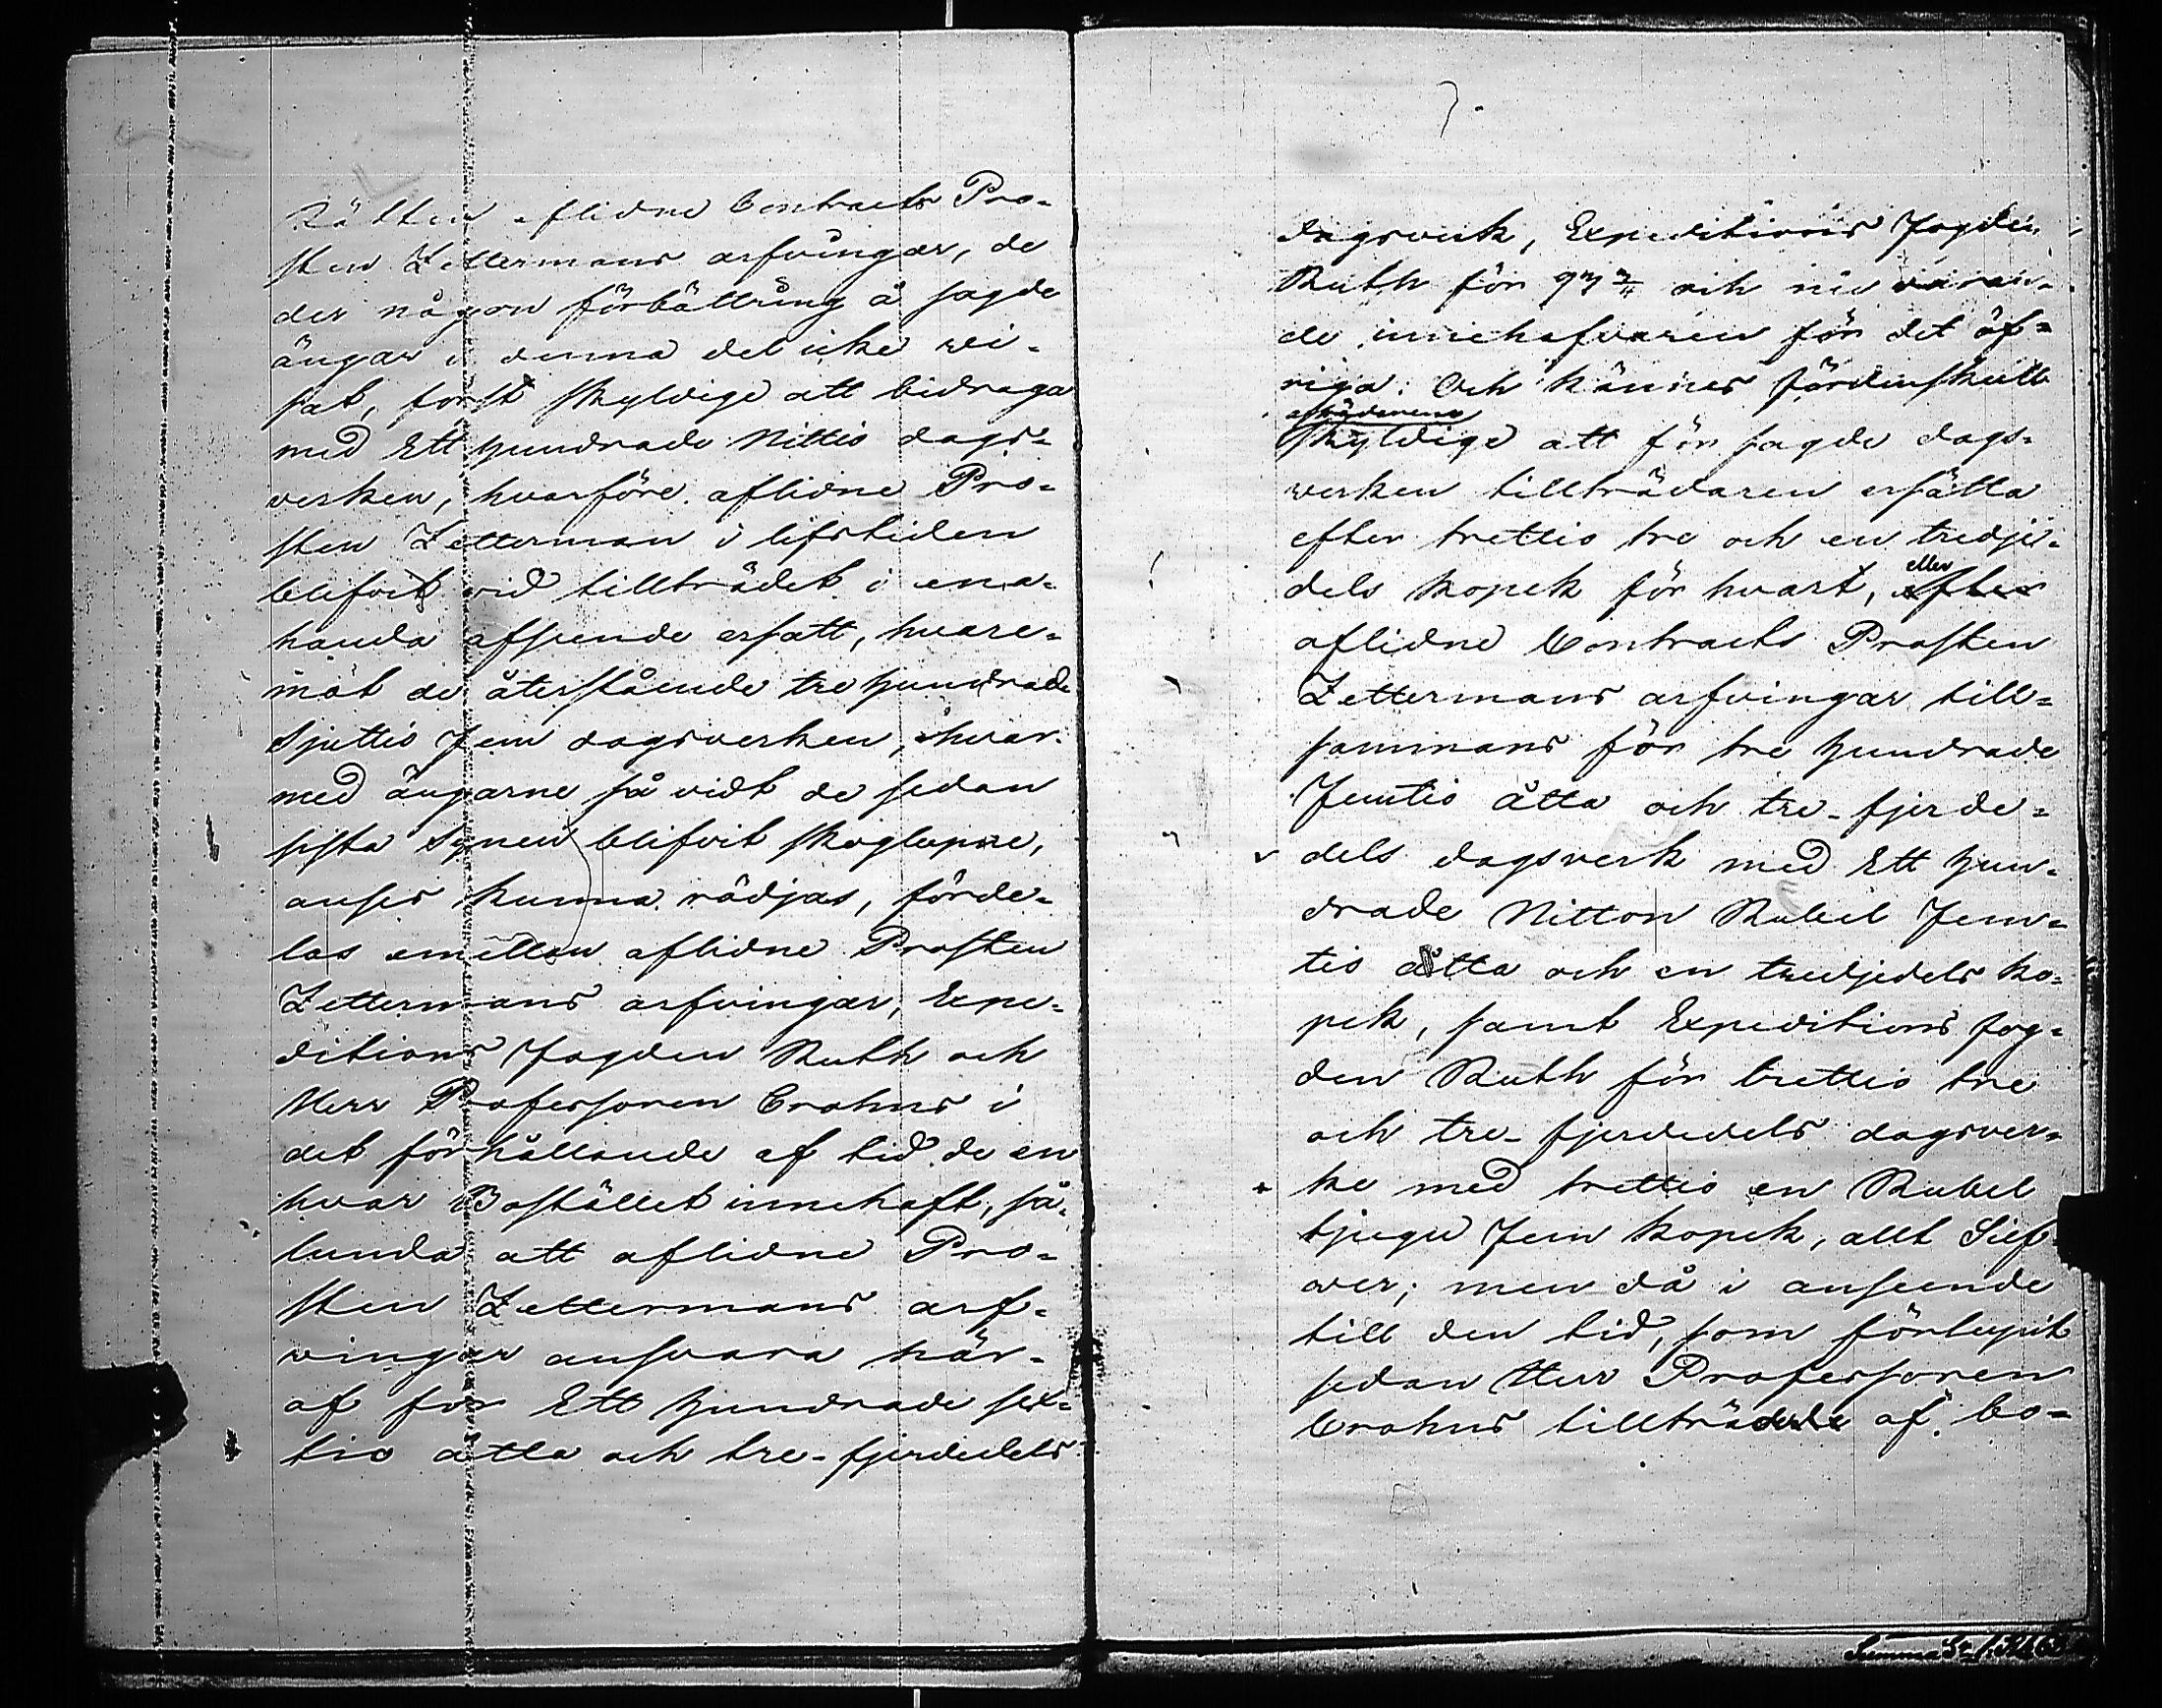 Rätten aflidne Contracts Pro-
sten Zettermans arfvingar, de
der någon förbättring å sagde
ängar i denna del icke vi-
sat, först skyldige att bidraga
med Ett hundrade Nittio dags-
verken, hvarföre aflidne Pro-
sten Zetterman i lifstiden
blifvit vid tillträdet i ena-
handa afseende ersatt, hvare-
mot de återstående tre hundrade
Sjuttio fem dagsverken, hvar-
med ängarne så vidt de sedan
sista synen blifvit skoglupne,
anses kunna rödjas, förde-
las emellan aflidne Prosten
Zettermans arfvingar, Expe-
ditions Fogden Ruth och
Herr Professoren Crohns i
det förhållande af tid de en
hvar Bostället innehaft, så-
lunda att aflidne Pro-
sten Zettermans arf-
vingar ansvara här-
af for Ett hundrade sex-
tio åtta och tre-fjerdedels
7.
dagsverk, Expeditions Fogden
Ruth för 93 3/4 och nu varan-
de innehafvaren för det öf-
riga. Och kännes fördenskull
afträdarene
skyldige att för sagde dags-
verken tillträdaren ersätta
efter trettio tre och en tredje-
dels kopek för hvart, efter
eller
aflidne Contracts Prosten
Zettermans arfvingar till-
sammans för tre hundrade
Femtio åtta och tre-fjerde-
dels dagsverk med Ett hun-
drade Nitton Rubel Fem-
tio åtta och en tredjedels ko-
pek, samt Expeditions fog-
den Ruth för trettio tre
och tre-fjerdedels dagsver-
ke med trettio en Rubel
tjugu fem kopek, allt Silf-
ver; men då i anseende
till den tid, som förlupit
sedan Herr Professoren
Crohns tillträdde af. bo-
Summa